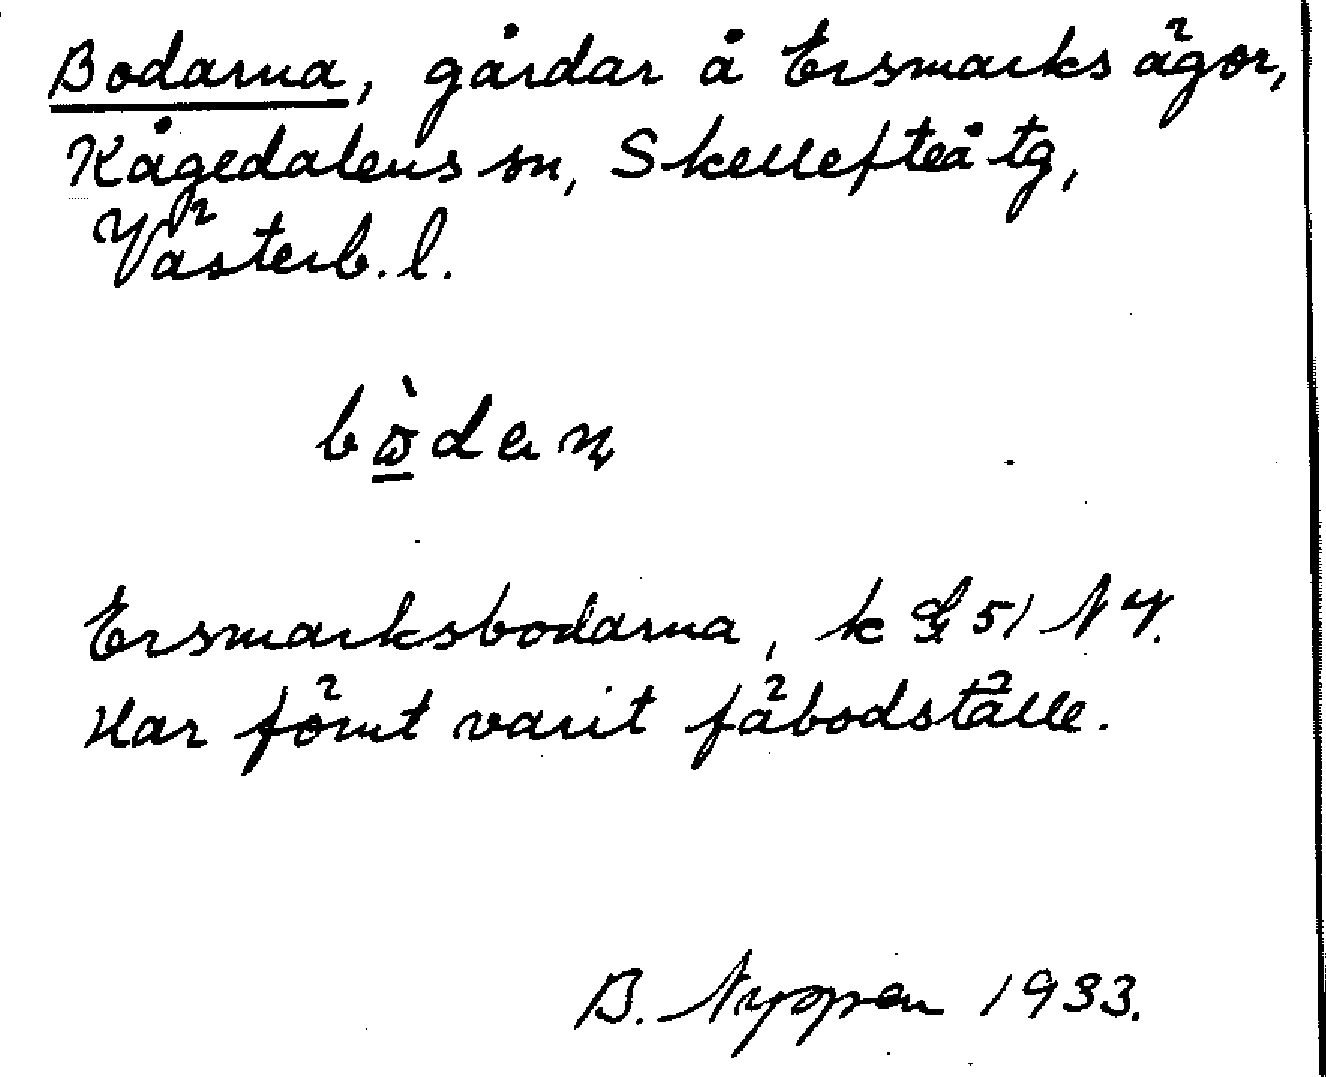 Bodarna, gårdar å Ersmarks ägor,
Kågedalens sn, Skellefteå tg,
Västerb. l.
Ersmarksbodarna, k 51 N 4.
Har förut varit fäbodställe.
B. Nyppen 1933.